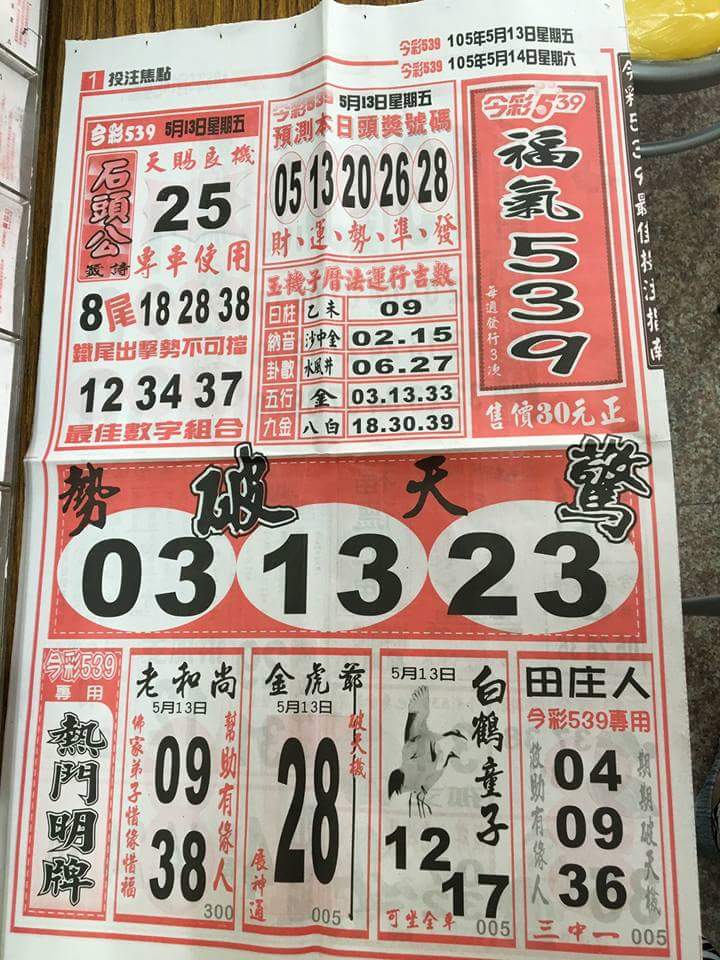 今彩539 105年5月13日星期五
今彩539 105年5月14日星期六
1 投注焦點
今彩539 5月13日星期五
石頭公
簽詩
天賜良機
25
專車使用
8尾 18 28 38
鐵尾出擊勢不可擋
12 34 37
最佳數字組合
今彩539 5月13日星期五
預測本日頭獎號碼
05 13 20 26 28
財、運、勢、準、發
玉機子曆法運行吉數
日柱 乙未 09
納音 沙中金 02.15
卦數 水風井 06.27
五行 金 03.13.33
九金 八白 18.30.39
今彩539
福氣539
每週發行3次
售價30元正
今彩539最佳投注指南
勢破天驚
03 13 23
今彩539
專用
熱門明牌
老和尚
5月13日
佛家弟子惜緣惜福
09
38
幫助有緣人
300
金虎爺
5月13日
破天機
28
展神通
005
5月13日
白鶴童子
12
17
可坐全車
005
田庄人
今彩539專用
救助有緣人
04
09
36
期期破天機
三中一
005